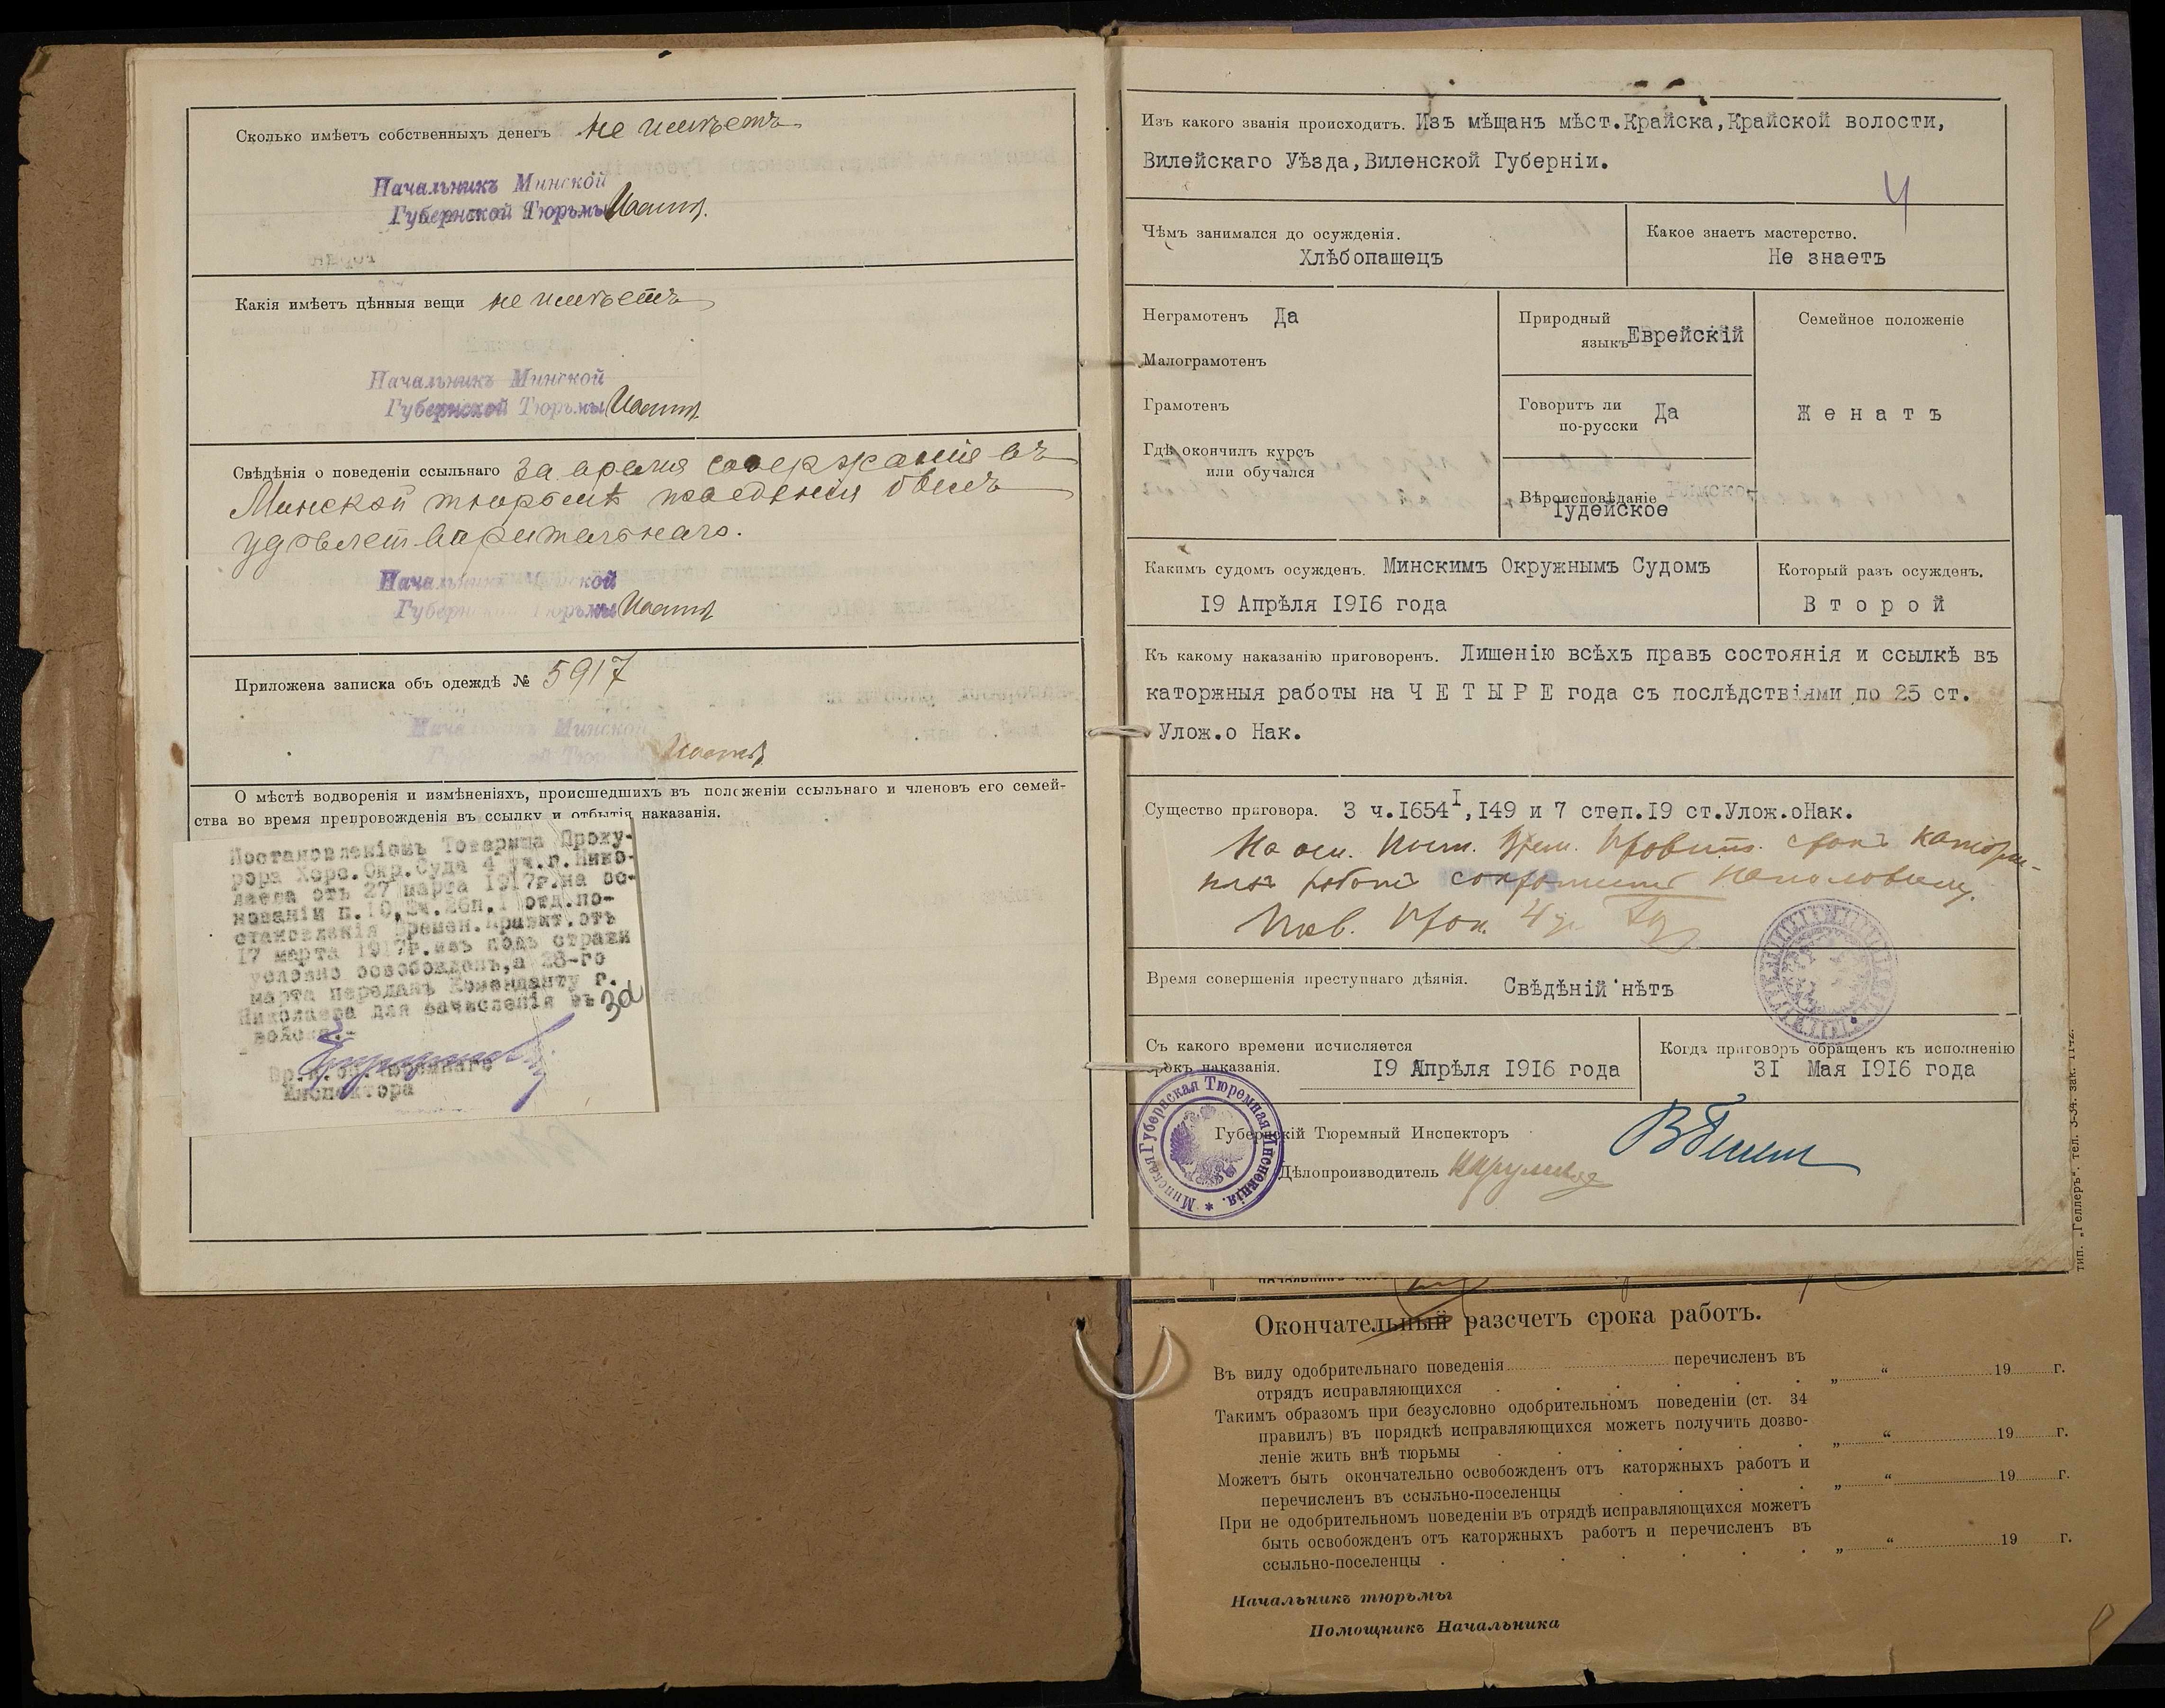 Сколько имѣетъ собственныхъ денегъ не имѣетъ
Начальникъ Минской
Губернской Тюрьмы
Какія имѣетъ цѣнныя вещи не имѣетъ
Начальникъ Минской
Губернской Тюрьмы
Свѣдѣнія о поведеніи ссыльнаго За время содержанія въ
Минской тюрьмѣ поведенія былъ
удовлетворительнаго.
Начальникъ Минской
Губернской Тюрьмы
Приложена записка объ одеждѣ № 5917
Начальникъ Минской
Губернской Тюрьмы
О мѣстѣ водворенія и измѣненіяхъ, происшедшихъ въ положеніи ссыльнаго и членовъ его семей-
ства во время препровожденія въ ссылку и отбытія наказанія.
Постановленіемъ Товарища Проку-
рора Херс.Окр.Суда 4 уч.г.Нико-
лаева отъ 27 марта 1917г.на ос-
нованіи п.10,2ч.26п.I отд.по-
становленія Времен.Правит.отъ
17 марта 1917г.изъ подъ стражи
условно освобожденъ,а 28-го
марта передавъ Коменданту г.
Николаева для зачисленія въ
войска.-
Вр.и.об.Тюремнаго
Инспектора
За
Изъ какого званія происходитъ. Изъ мѣщанъ мѣст.Крайска,Крайской волости,
Вилейскаго Уѣзда,Виленской Губерніи.
4
Чѣмъ занимался до осужденія.
Хлѣбопашецъ
Какое знаетъ мастерство.
Не знаетъ
Неграмотенъ Да
Малограмотенъ
Грамотенъ
Гдѣ окончилъ курсъ
или обучался
Природный
языкъ Еврейскій
Говоритъ ли
по-русски Да
Вѣроисповѣданіе
Іудейское
Семейное положеніе
Женатъ
Какимъ судомъ осужденъ. Минскимъ Окружнымъ Судомъ
19 Апрѣля 1916 года
Который разъ осужденъ.
Второй
Къ какому наказанію приговоренъ. Лишенію всѣхъ правъ состоянія и ссылкѣ въ
каторжныя работы на ЧЕТЫРЕ года съ послѣдствіями по 25 ст.
Улож.о Нак.
Существо приговора. 3 ч.1654 I,149 и 7 степ.19 ст.Улож.оНак.
На осн. Пост. Врем. Правит. срокъ каторж-
ныхъ работъ сократить на половину.
Тов. Прок. 4 у.
Время совершенія преступнаго дѣянія. Свѣдѣній нѣтъ
Съ какого времени исчисляется
срокъ наказанія. 19 Апрѣля 1916 года
Когда приговоръ обращенъ къ исполненію
31 Мая 1916 года
Минская Губернская Тюремная Инспекція.
Губернскій Тюремный Инспекторъ
Дѣлопроизводитель
тип. „Геллеръ“. тел. 3-34. зак. 1142.
Окончательный разсчетъ срока работъ.
Въ виду одобрительнаго поведенія перечисленъ въ
отрядъ исправляющихся „ “ 19 г.
Такимъ образомъ при безусловно одобрительномъ поведеніи (ст. 34
правилъ) въ порядкѣ исправляющихся можетъ получить дозво-
леніе жить внѣ тюрьмы „ “ 19 г.
Можетъ быть окончательно освобожденъ отъ каторжныхъ работъ и
перечисленъ въ ссыльно-поселенцы „ “ 19 г.
При не одобрительномъ поведеніи въ отрядѣ исправляющихся можетъ
быть освобожденъ отъ каторжныхъ работъ и перечисленъ въ
ссыльно-поселенцы „ “ 19 г.
Начальникъ тюрьмы
Помощникъ Начальника